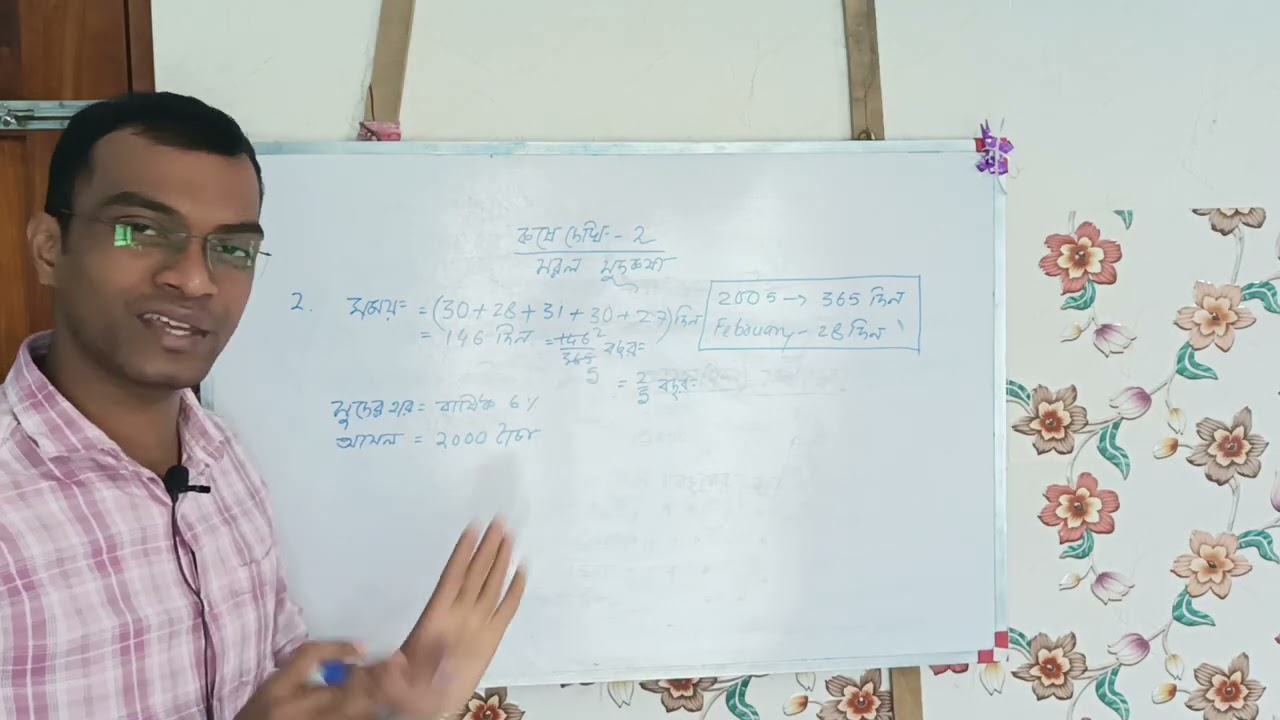 কষে দেখি - 2
সরল সুদকষা
2. সময় = (30+28+31+30+27) দিন
= 146 দিন = 146/365 বছর 2 5
= 2/5 বছর
সুদের হার = বার্ষিক 6%
আসল = 2000 টাকা
2005 → 365 দিন
February - 28 দিন